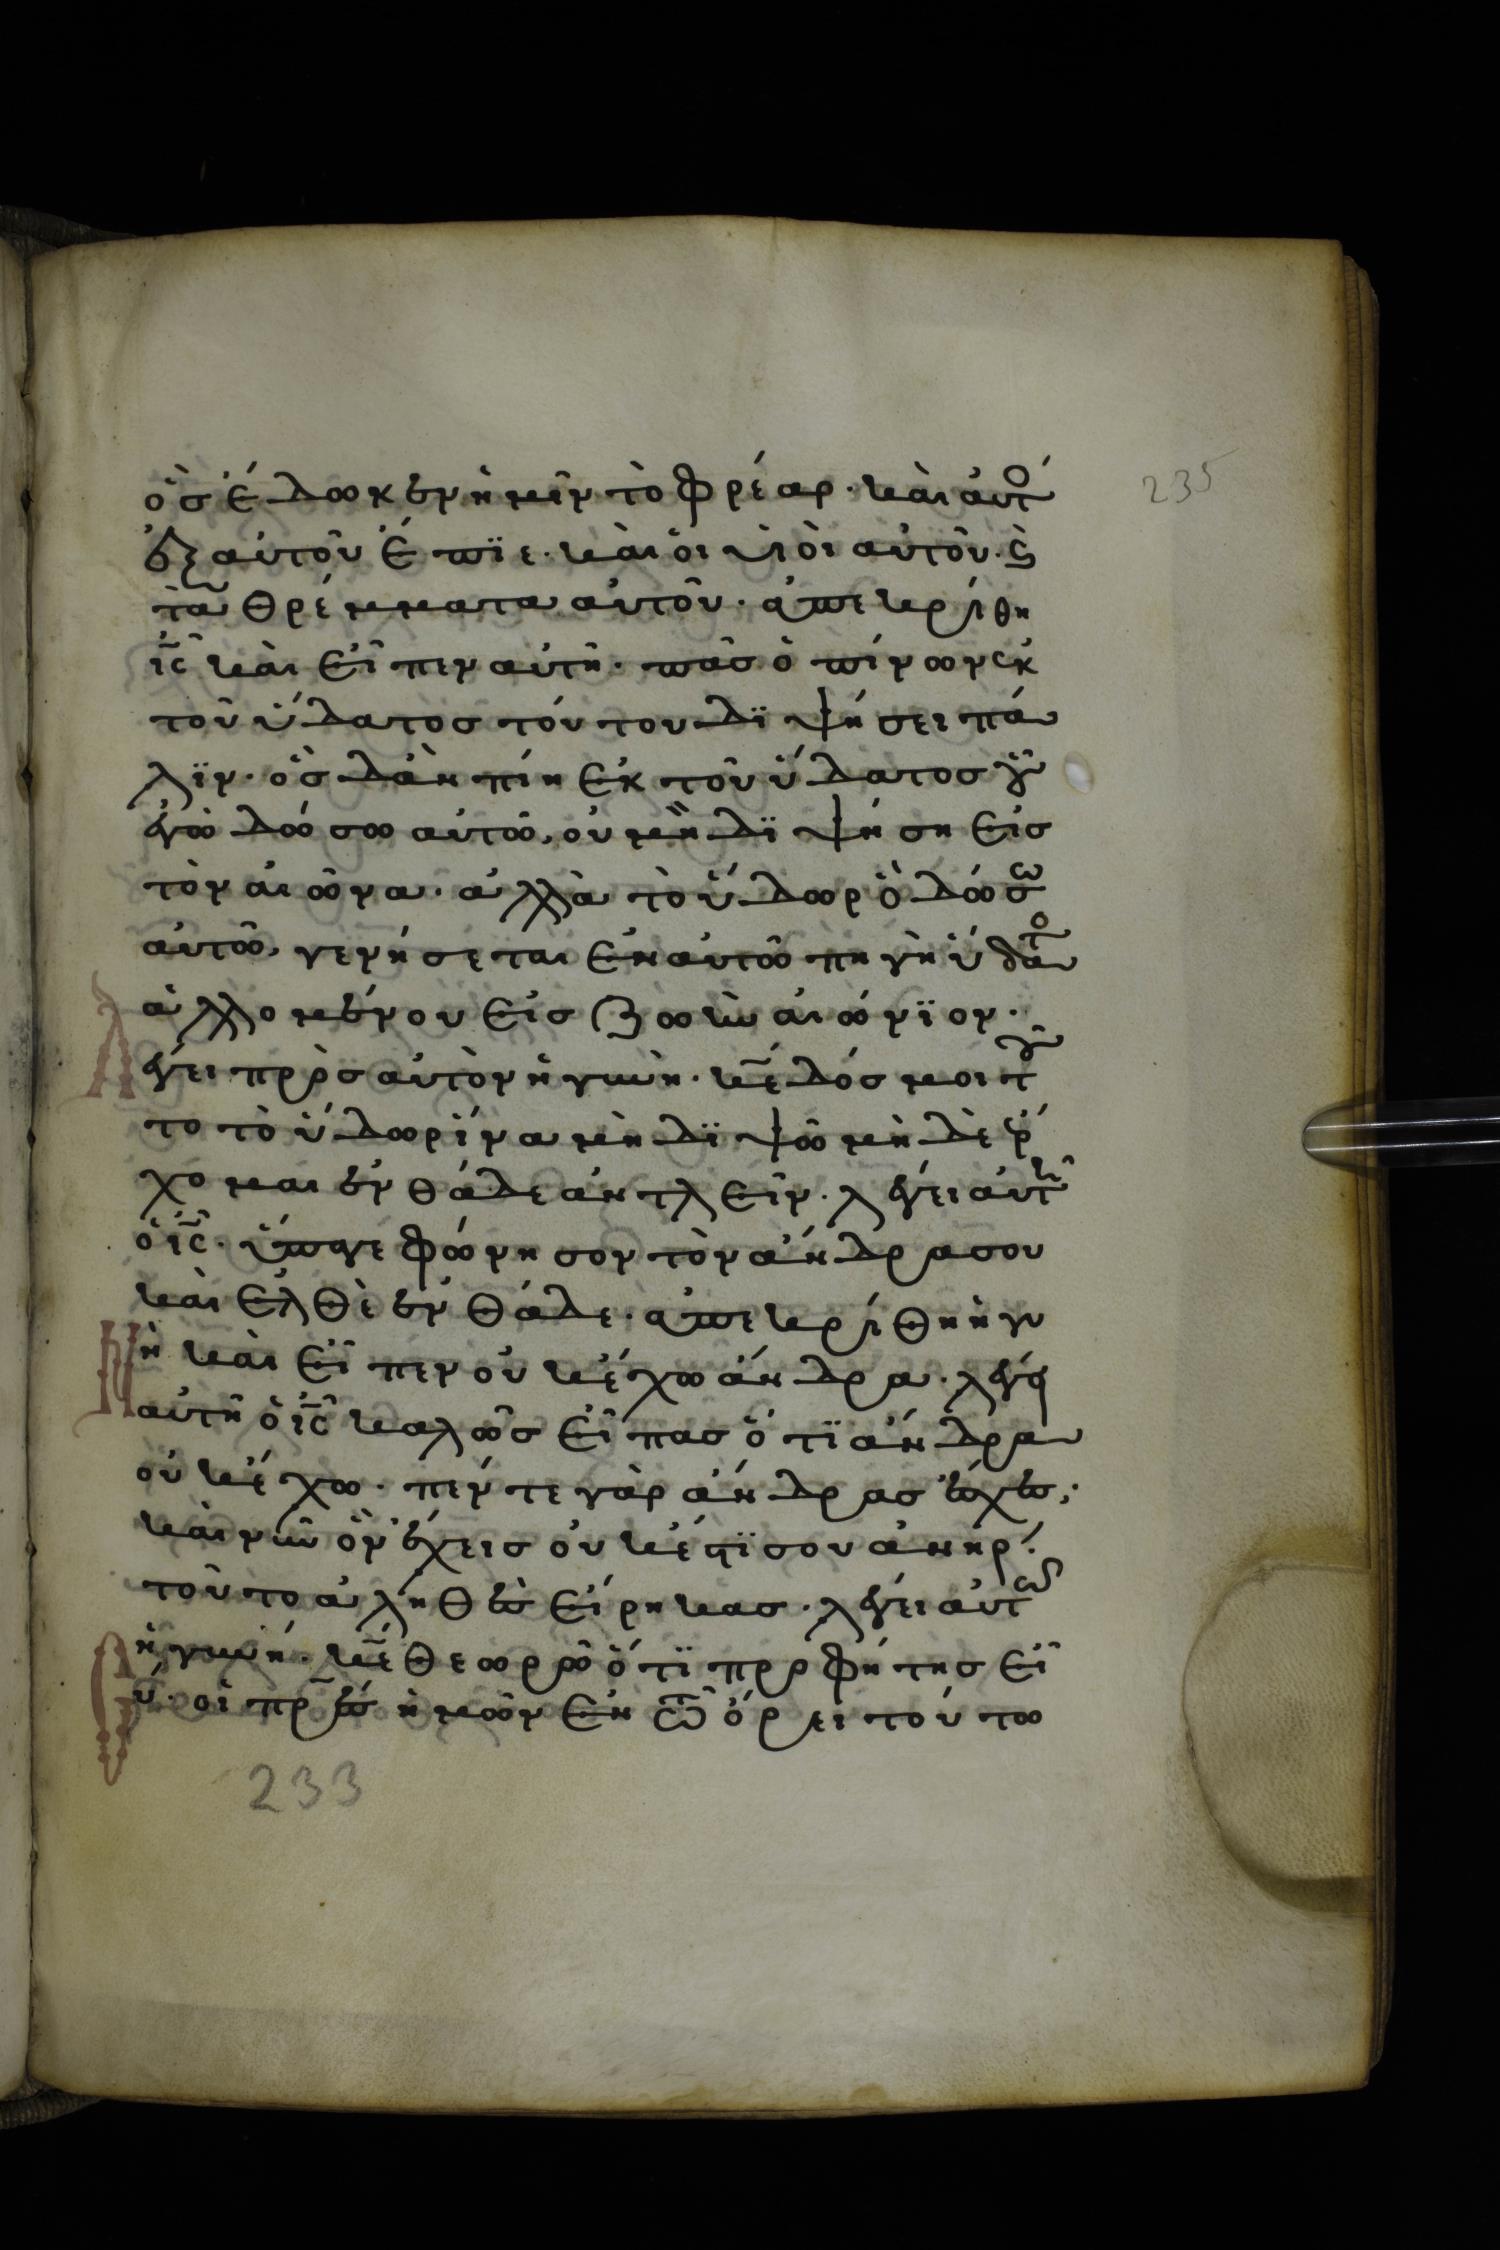 ὃσ ἔδωκεν ἡμῖν τὸ φρέαρ· καὶ αὐτὸ
ἐξ αὐτοῦ ἔπϊε· καὶ οἱ υἱοὶ αὐτοῦ· ϛ
τὰ θρέμματα αὐτοῦ· ἀπεκρίθη
ις̅ καὶ εἶπεν αὐτῆ· πᾶσ ὁ πίνων ἐκ
τοῦ ὕδατοσ τούτου δϊψήσει πά
λϊν· ὃσ δ ἂν πίη ἐκ τοῦ ὕδατοσ οὗ
ἐγὼ δώσω αὐτῶ, οὐ μὴ δϊψήση εἰσ
τὸν αἰῶνα· ἀλλὰ τὸ ὕδωρ ὃ δώσω
αὐτῶ, γενήσεται ἐν αὐτῶ πηγὴ ὕδατο
ἁλλομένου εἰσ ζωὴν αἰώνϊον·
Λέγει πρὸσ αὐτὸν ἡ γυνὴ· κε̅ δόσ μοι τοῦ
το τὸ ὕδωρ ἵνα μὴ δϊψῶ μὴ δὲ ἔρ
χομαι ἐνθάδε ἀντλεῖν· λέγει αὐτῆ
ὁ ις̅· ὕπαγε φώνησον τὸν ἄνδρα σου
καὶ ἐλθὲ ἐνθάδε· ἀπεκρίθη ἡ γυ
Νὴ καὶ εἶπεν οὐκ ἔχω ἄνδρα· λέγει
αὐτῆ ὁ ις̅ καλῶσ εἶπασ ὅτϊ ἄνδρα
οὐκ ἔχω· πέντε γὰρ ἄνδρασ ἔσχεσ,·
καὶ νῦν ὃν ἔχεισ οὐκ ἔστϊ σου ἀνήρ·
τοῦτο ἀληθὲσ εἴρηκασ· λέγει αὐτῶ
ἡ γυνή· κε̅ θεωρῶ ὅτϊ προφήτησ εἶ
Σύ· οἱ πρ̅εσ ἡμῶν ἐν τῶ ὄρει τούτω
233
235